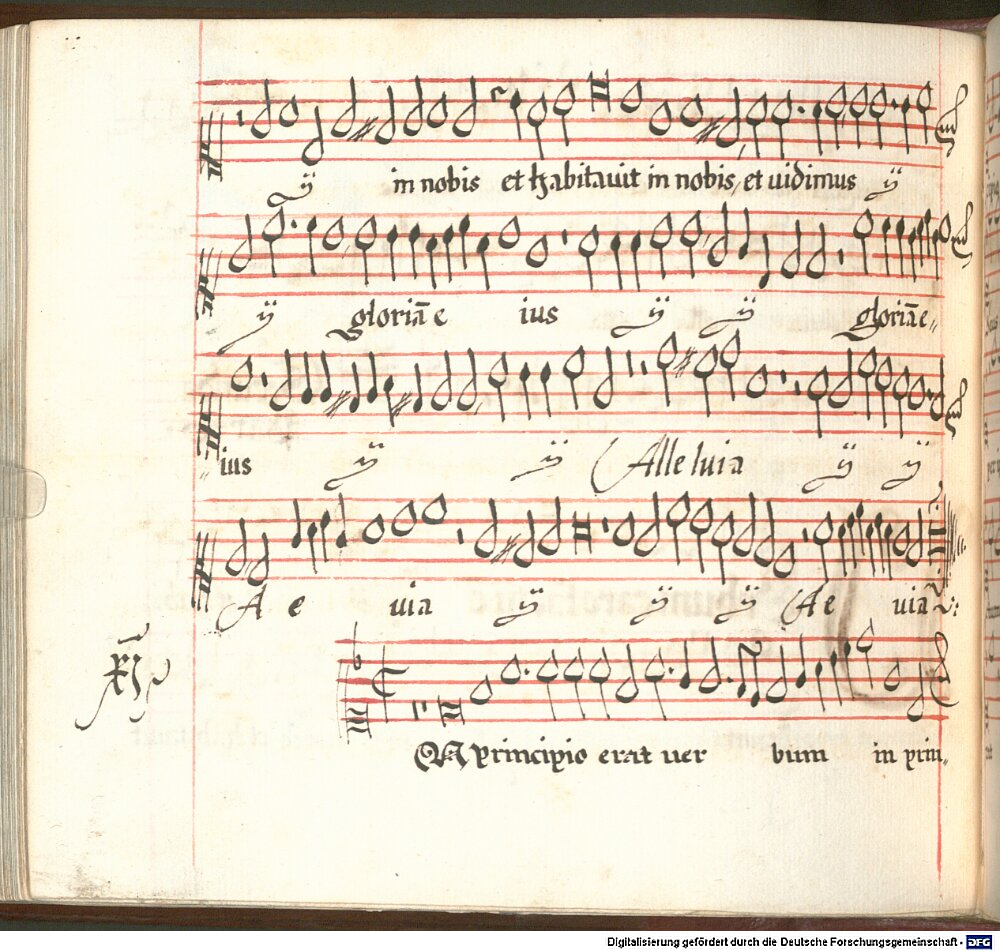 ij in nobis et habitavit in nobis, et vidimus ij
ij gloriā e ius ij ij gloriā e„
„ius ij ij Alleluia ij ij
A e uia ij ij ij Ae uia
In principio erat uer bum in prin„
Digitalisierung gefördert durch die Deutsche Forschungsgemeinschaft - DFG